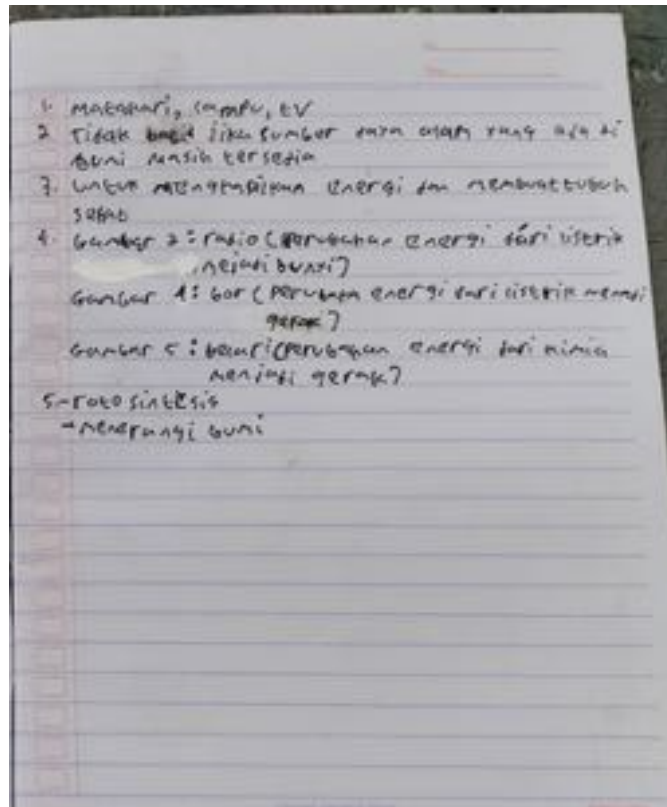 1. Matahari, lampu, tv
2 Tidak jika sumber daya alam yang ada di
bumi masih tersedia
3. untuk energi dan membuat tubuh
sehat
4. Gambar 2: radio (perubahan energi dari listrik
menjadi bunyi)
Gambar 4: bor (perubahan energi dari listrik menjadi
gerak)
Gambar 5: (perubahan energi dari kimia
menjadi gerak)
5-Fotosintesis
-menerangi bumi